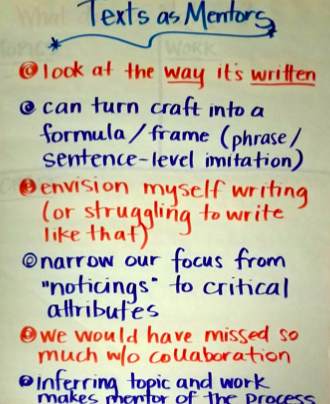 Texts as Mentors
TOPIC
WORK
look at the way it's written
can turn craft into a
formula/frame (phrase/
sentence-level imitation)
envision myself writing
(or struggling to write
like that)
narrow our focus from
"noticings" to critical
attributes
we would have missed so
much w/o collaboration
inferring topic and work
makes mentor of the process